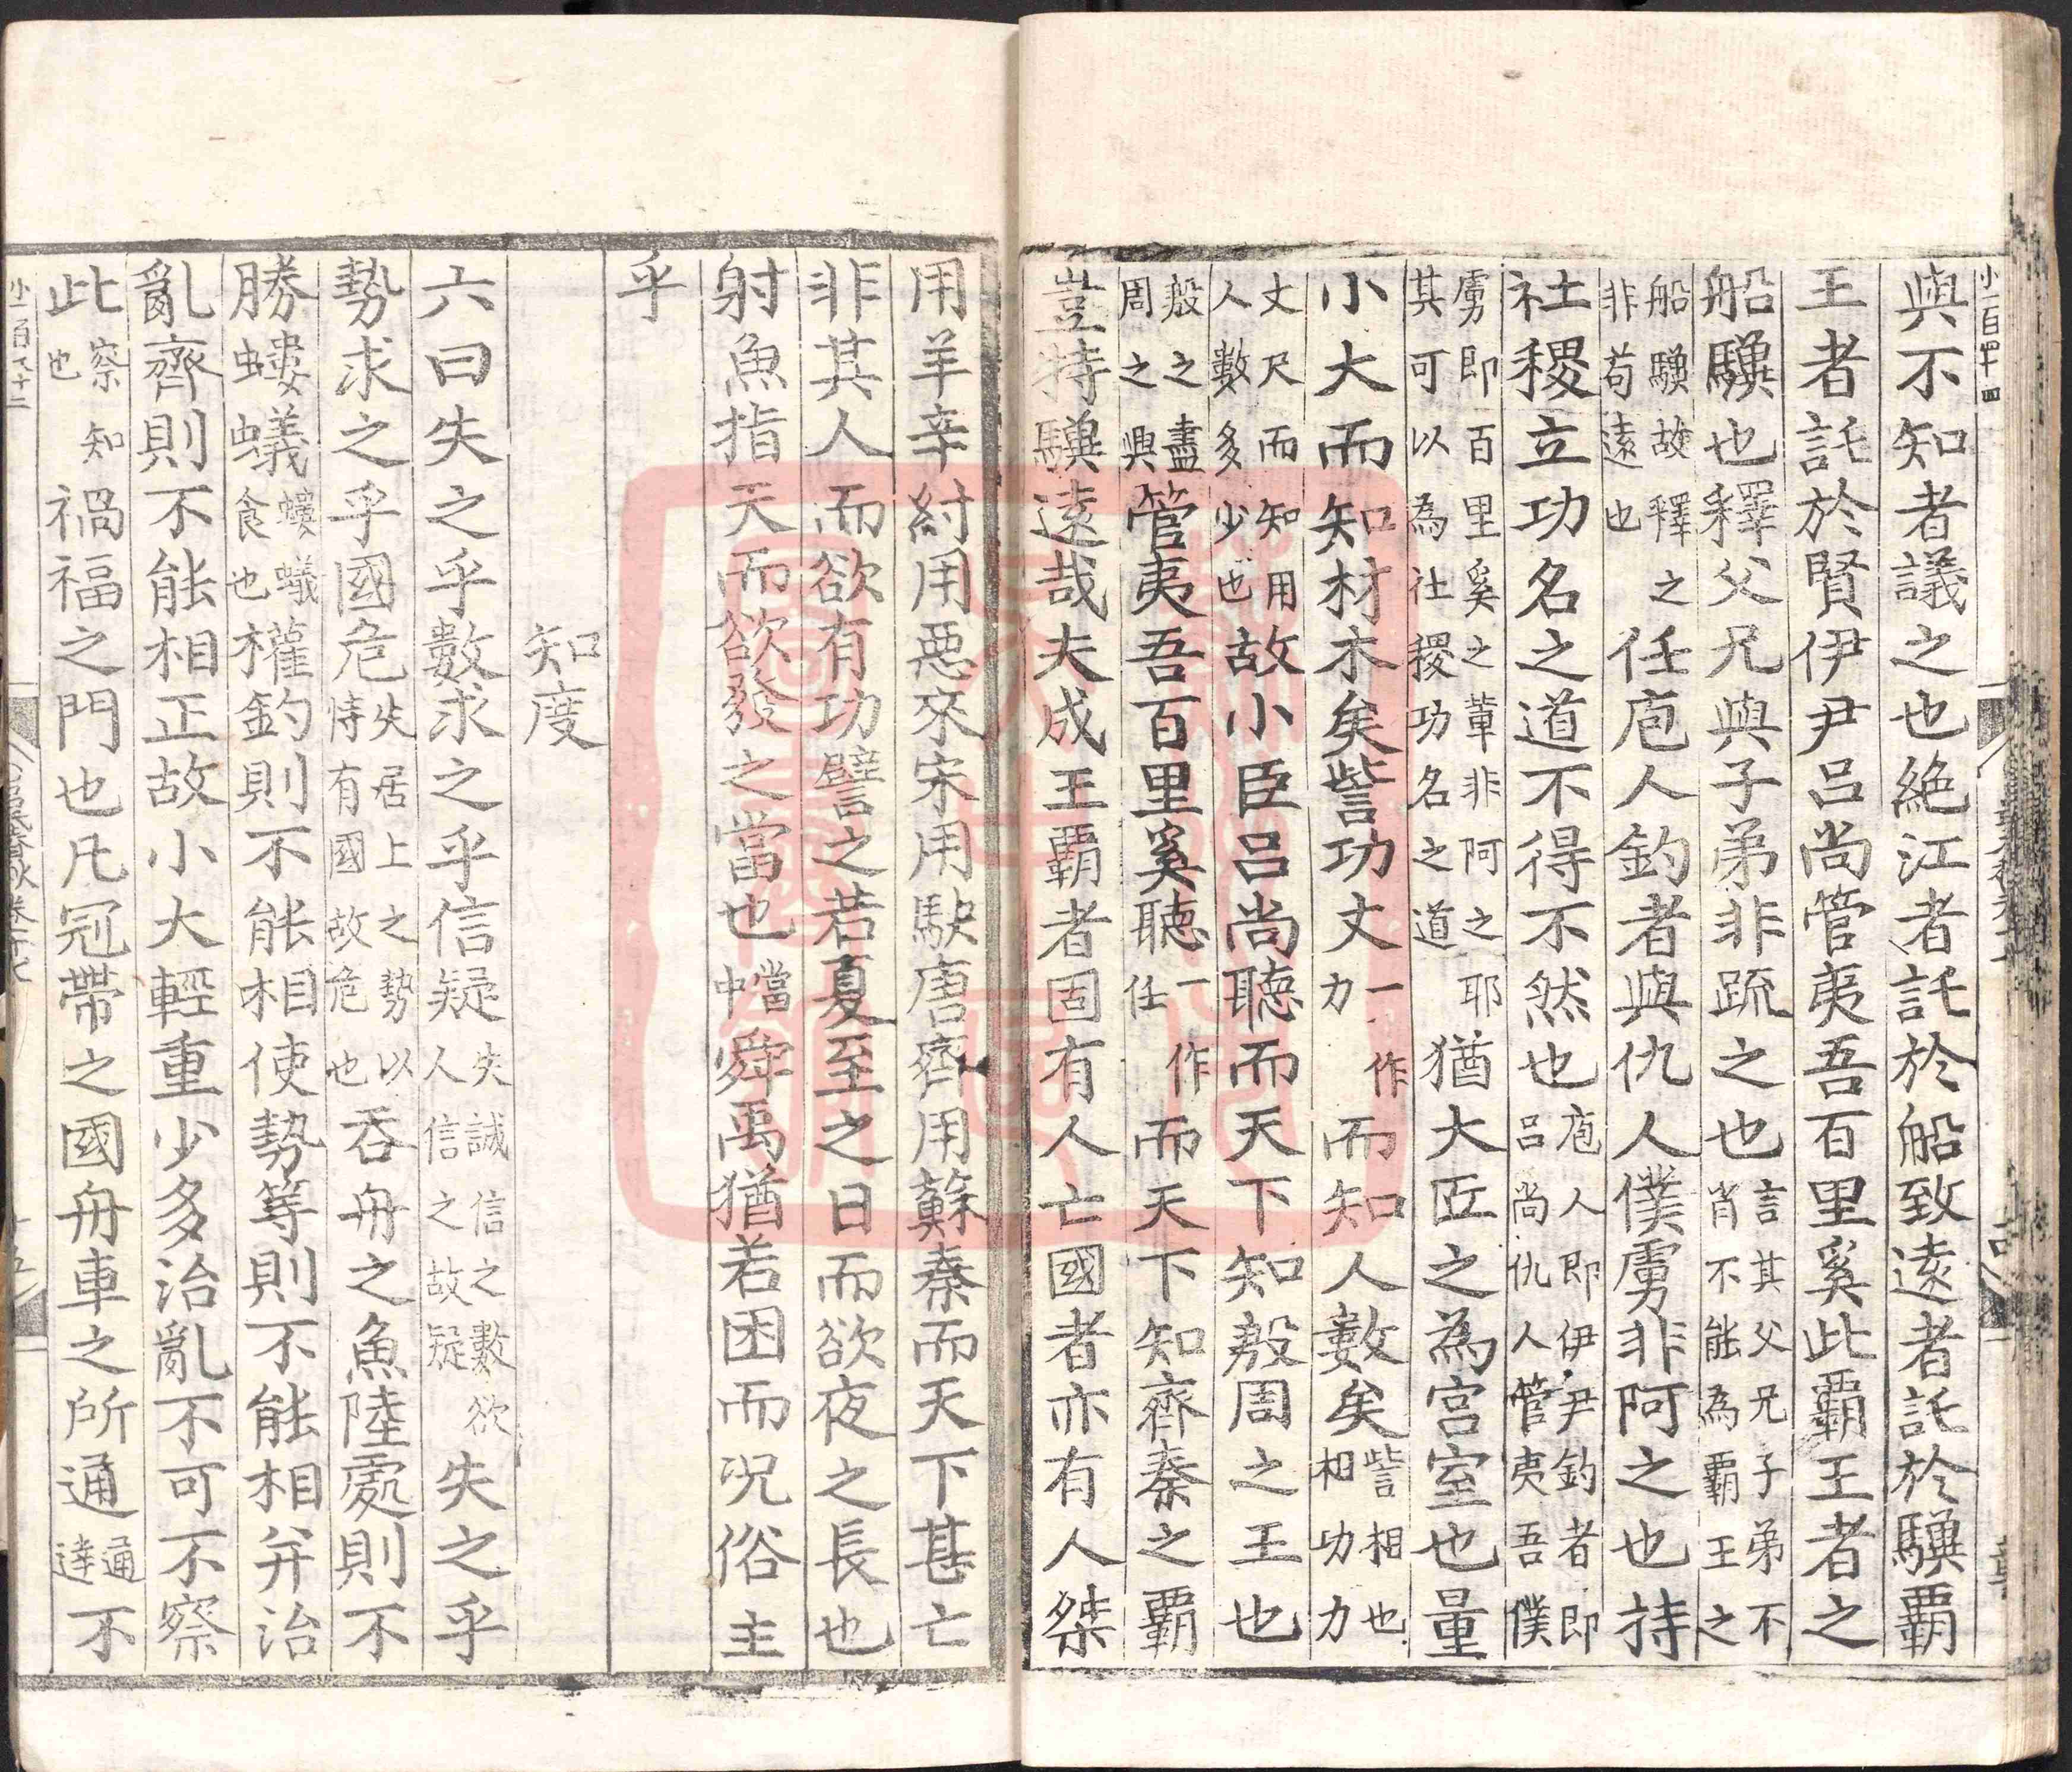 小一百四十四
與不知者議之也絶江者託於船致遠者託於驥霸
王者託於賢伊尹吕尚管夷吾百里奚此霸王者之
船驥也釋父兄與子弟非疏之也言其父兄子弟不肖不能為霸王之
船驥故釋之非苟遠也任庖人釣者與仇人僕虜非阿之也持
社稷立功名之道不得不然也庖人即伊尹釣者即吕尚仇人管夷吾僕
虜即百里奚之軰非阿之耶其可以為社稷功名之道猶大匠之為宫室也量
小大而知材木矣訾功丈一作力而知人數矣訾相也相功力
丈尺而知用人數多少也故小臣吕尚聽而天下知殷周之王也
殷之盡周之興管夷吾百里奚聽一作任而天下知齊秦之霸
豈持驥遠哉夫成王霸者固有人亡國者亦有人桀
用羊辛紂用惡來宋用駚唐齊用蘇秦而天下甚亡
非其人而欲有功譬之若夏至之日而欲夜之長也
射魚指天而欲發之當也當中舜禹猶若困而况俗主
乎
知度
六曰失之乎數求之乎信疑失誠信之數欲人信之故疑失之乎
勢求之乎國危失居上之勢以恃有國故危也吞舟之魚陸處則不
勝螻蟻螻蟻食也權鈞則不能相使勢等則不能相并治
亂齊則不能相正故小大輕重少多治亂不可不察
此察知也禍福之門也凡冠帶之國舟車之所通通達不
小一百六十二
吕氏春秋卷十七
十五